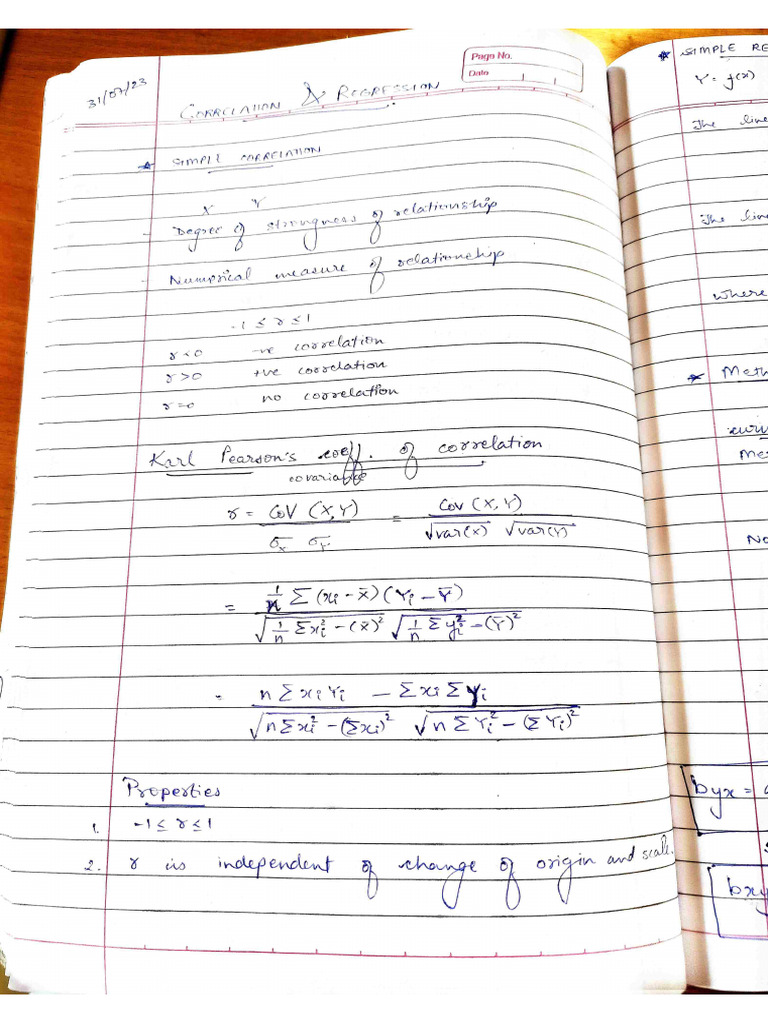 Page No.
Date
31/07/23
CORRELATION & REGRESSION
* SIMPLE CORRELATION
X Y
- Degree of strongness of relationship
- Numerical measure of relationship
-1 ≤ r ≤ 1
r<0 -ve correlation
r>0 +ve correlation
r=0 no correlation
Karl Pearson's coeff. of correlation
covariance
r = COV (X,Y) / σx σY = COV (X,Y) / √var(X) √var(Y)
= 1/n Σ (xi - x̄) (Yi - Ȳ) / √(1/n Σxi² - (x̄)²) √(1/n Σyi² - (Ȳ)²)
= n Σ xi Yi - Σxi Σyi / √(n Σxi² - (Σxi)²) √(n ΣYi² - (ΣYi)²)
Properties
1. -1 ≤ r ≤ 1
2. r is independent of change of origin and scale.
* SIMPLE RE
Y = f(x)
The line
The line
where
* Meth
curv
Me
No
byx =
bxy